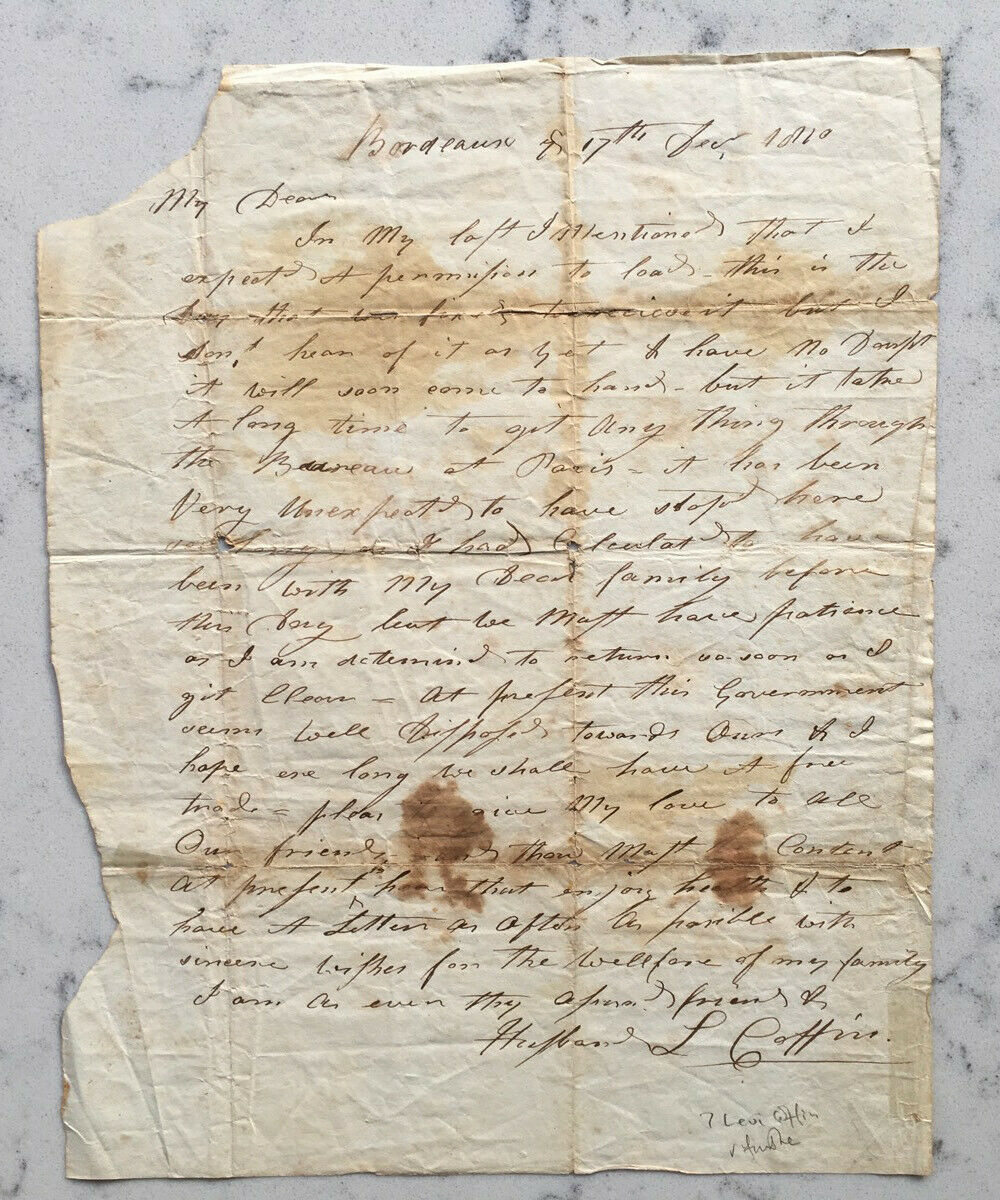 Bordeaux 17th Dec. 1810
My Dear
In My last I Mentioned that I
expectd A permission to load - this is the
Day that was fixd to receive it but I
don,t hear of it as yet & have No Doupt
it will soon come to hand - but it take
A long time to git Any thing through
the Bureau at Paris - it has been
Very Unexpectd to have stopd here
so long as I had Calculatd to have
been with My Dear family before
this Day but we Must have patience
as I am detemind to return so soon as I
git Clear = At present this Government
seems well Disposed towards Ours & I
hope ere long we shall have A free
trade = pleas give My love to All
Our friends and thou Must Content
At present to hear that enjoy health & to
have A Letter as often As posible with
sincere wishes for the wellfare of my family
I am As ever thy afsurd friend &
Husband L Coffin.
? Levi Coffin